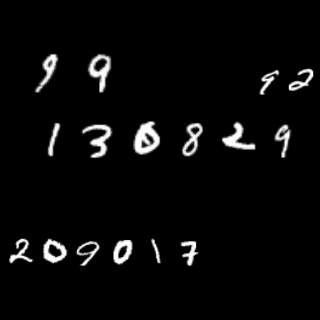 99
92
130829
209017